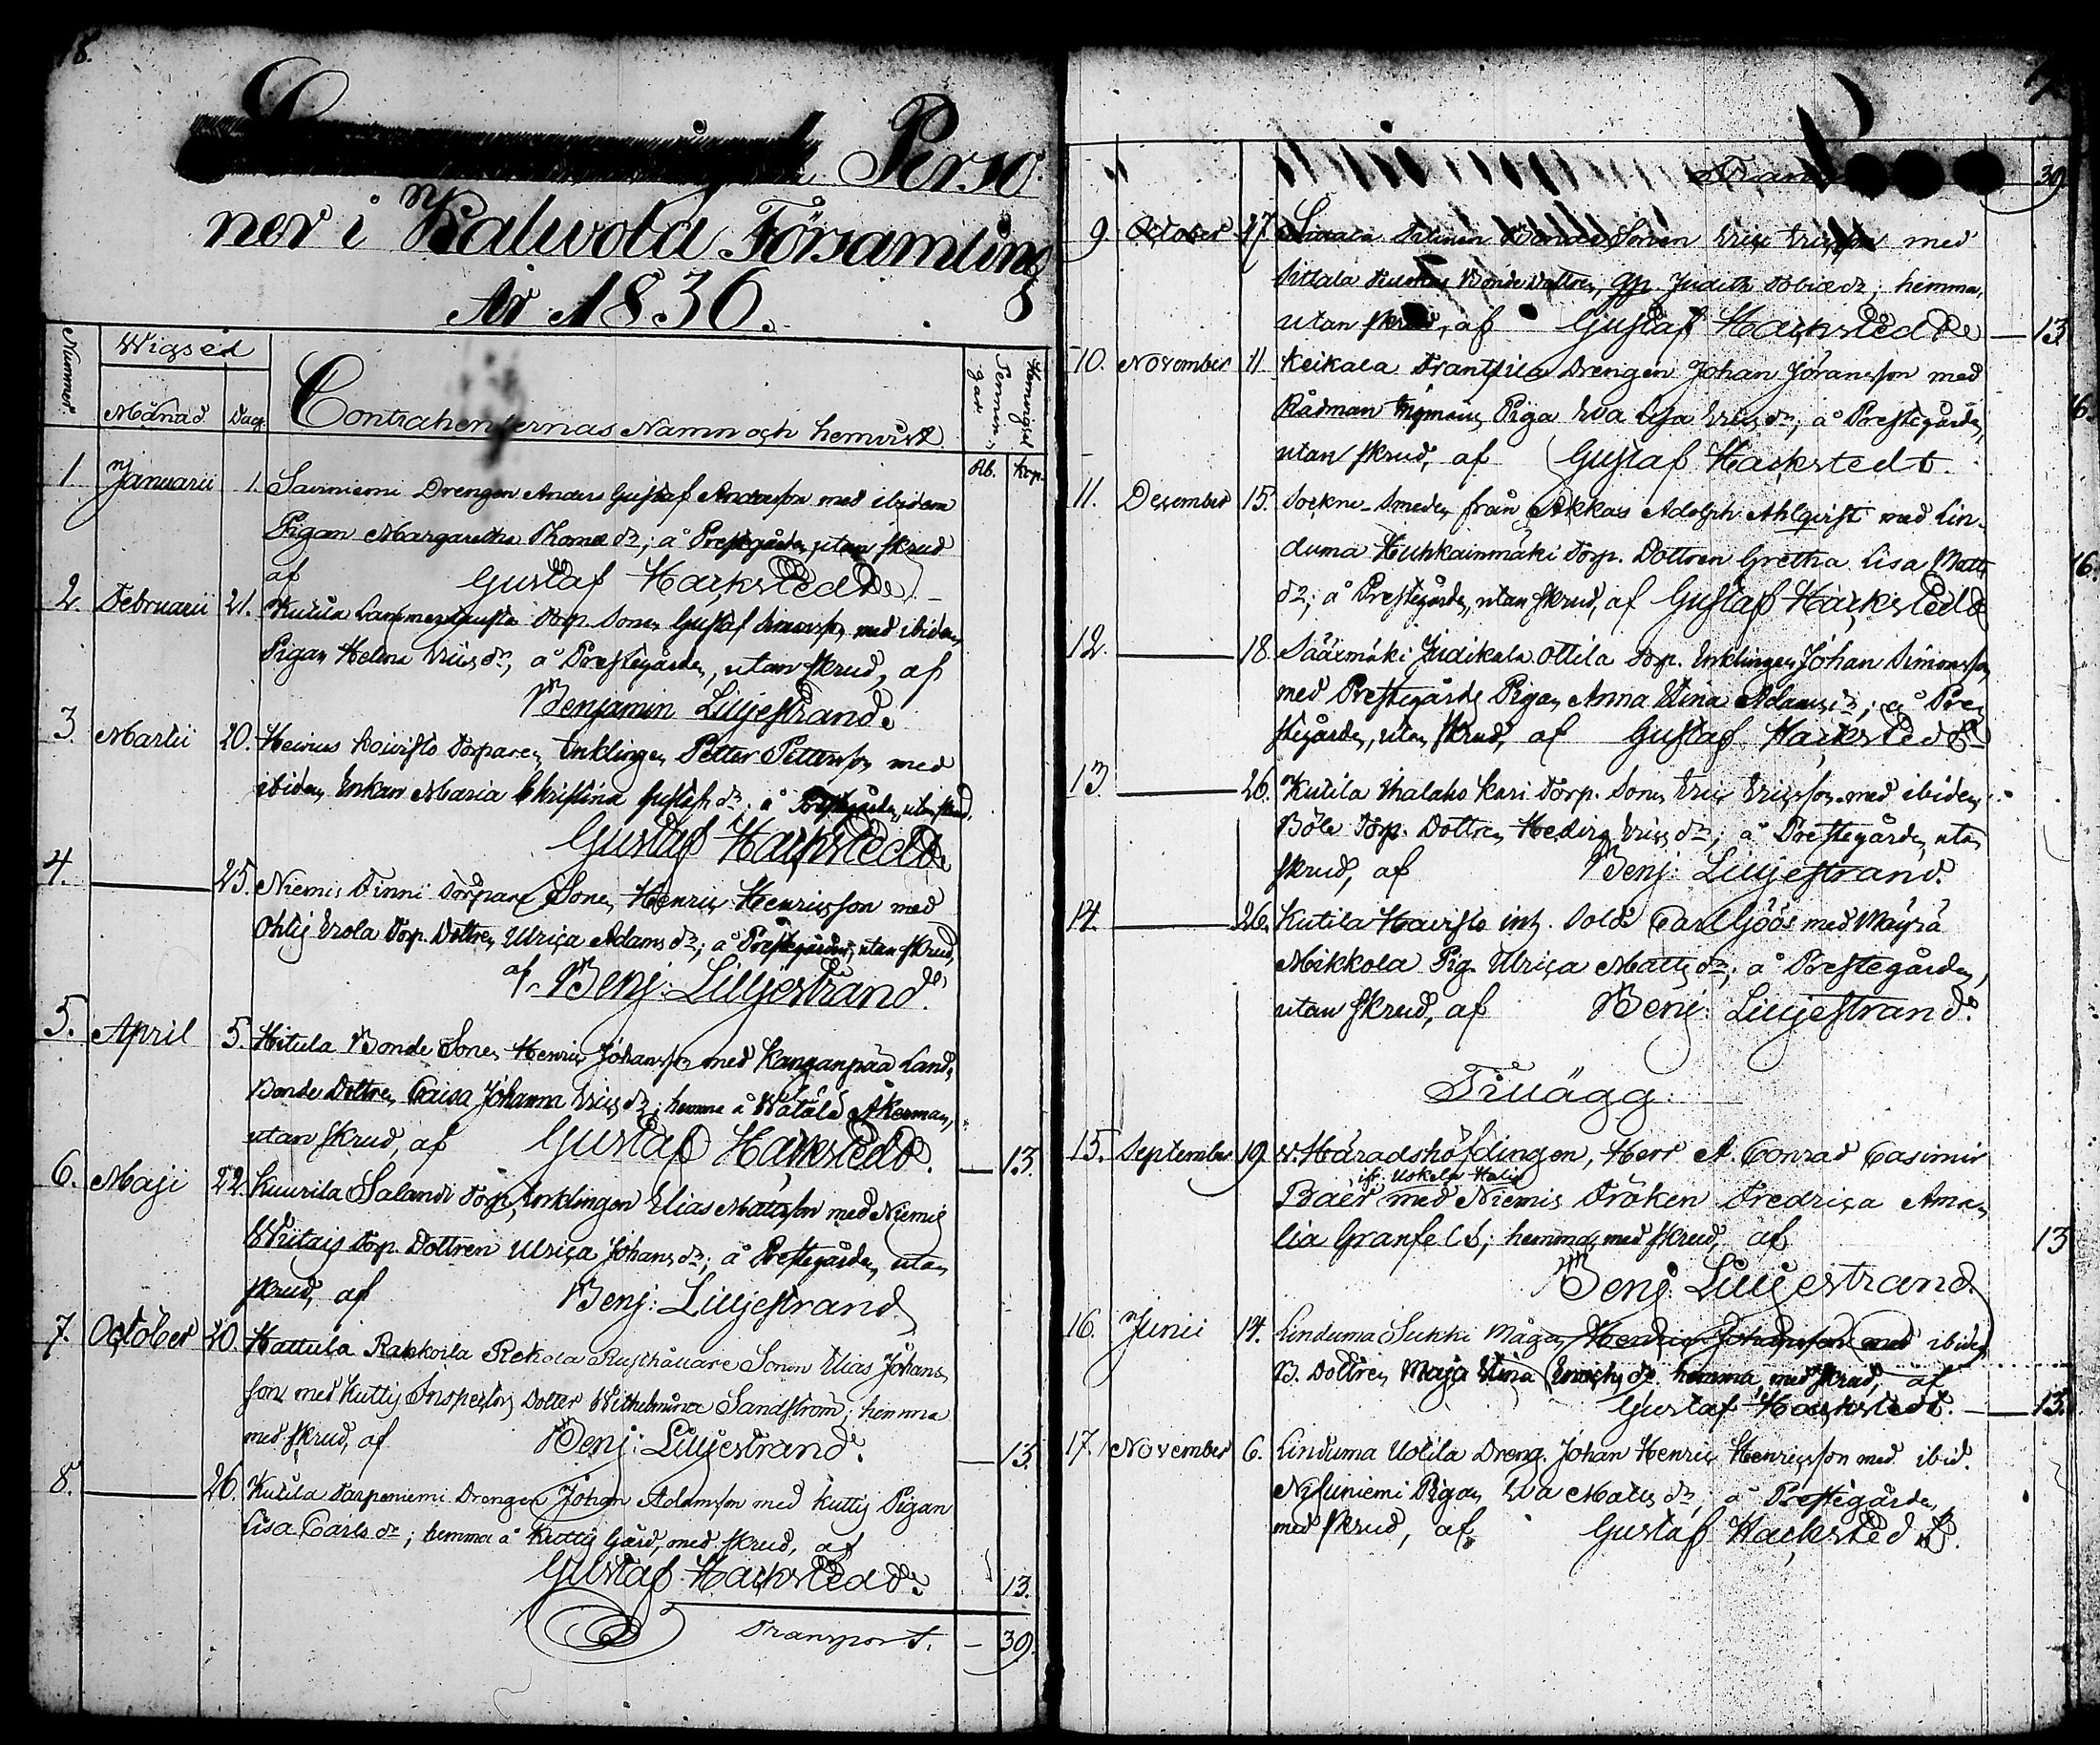 18.
Perso
ner i Kalwola Församling
År 1836.
Nummer
Wigsel
Månad
Dag
Contrahenternas Namn och hemvist
Penningar
Rb.
Kop.
1. Januarii 1. Saviniemi Drengen Anders Gustaf Andersson med ibidem
Pigan Margaretha Thomæ dr; å Prestegården, utan skrud
af Gustaf Hackstedt.
2. Februarii 21. Kutila Torp. Sonen Gustaf Simonsson med ibidem
Pigan Helena Erics dr, å Prestegården, utan skrud, af
Benjamin Liljestrand.
3. Martii 20. Heinus Koivisto Torparen Enklingen Petter Pettersson med
ibidem Enkan Maria Christina Gustafs dr; å Prestgården, utan skrud.
Gustaf Hacksted
4. 25. Niemis Finni Torpare Sonen Henric Henricsson med
Ohlis Erola Torp. Dottren Ulrica Adams dr; å Prestegården, utan skrud,
af Benj: Liljestrand.
5. April 5. Hitula Bonde Sonen Henric Johansson med Kanganpää Land-
Bonde Dottren Caisa Johanna Erics dr; hemma å Åkerman,
utan skrud, af Gustaf Hacksted. 13.
6. Maji 22. Kuurila Salandi Torp. Enklingen Elias Mattsson med Niemis
Torp. Dottren Ulrica Johans dr; å Prestegården, utan
skrud, af Benj: Liljestrand
7. October 20. Hattula Rahkoila Rekola Rusthållare Sonen Elias Johans-
son med Kuttis Inspectors Dotter Wilhelmina Sandström; hemma
med skrud, af Benj: Liljestrand. 13.
8. 26. Kutila Tarpeniemi Drengen Johan Adamsson med Kuttis Pigan
Lisa Carls dr; hemma å Kuttis Gård, med skrud, af
Gustaf Hacksted. 13.
Transport. 39.
39
9. October 27. Sonen Eric Ericsson med
Bonde Dottren, Judith Tobiæ dr; hemma,
utan skrud, af Gustaf Hacksted 13
10. November 11. Keikala Frantsila Drengen Johan Joransson med
Rådman Ingmans Piga Eva Lisa Erics dr; å Prestegården,
utan skrud, af Gustaf Hackstedt.
11. December 15. Sockne-Smeden från Akkas Adolph Ahlqvist med Lin-
duma Huhkainmäki Torp. Dottren Gretha Lisa Matts
dr; å Prestegården, utan skrud, af Gustaf Hacksted
12. 18. Sääxmäki Judikala Ottila Torp. Enklingen Johan Simonsson
med Prestegårds Pigan Anna Stina Adams dr; å Pre-
stegården, utan skrud, af Gustaf Hacksted
13. 26. Kutila Torp. Sonen Eric Ericsson med ibidem
Böle Torp. Dottren Hedvig Erics dr; å Prestegården, utan
skrud, af Benj: Liljestrand.
14. 26. Kutila Havisto inh. Sold. Carl Göös med Mäyrä
Mikkola Pig. Ulrica Matts dr; å Prestegården,
utan skrud, af Benj: Liljestrand.
Tillägg.
15. September 19. v. Häradshöfdingen, Herr A. Conrad Casimir
ifr. Uskela Halis
Baër med Niemis Fröken Fredrica Ama-
lia Granfelt; hemma, med skrud, af 13
Benj. Liljestrand.
16. Junii 14. Linduma Sukki Mågen Henric Johansson med ibidem
B. Dottren Maja Stina dr hemma, med skrud, af
Gustaf Hackstedt. 13.
17. November 6. Linduma Uotila Dreng. Johan Henric Henricsson med ibid.
Pigan Eva Matts dr, å Prestegården
med skrud, af Gustaf Hacksted